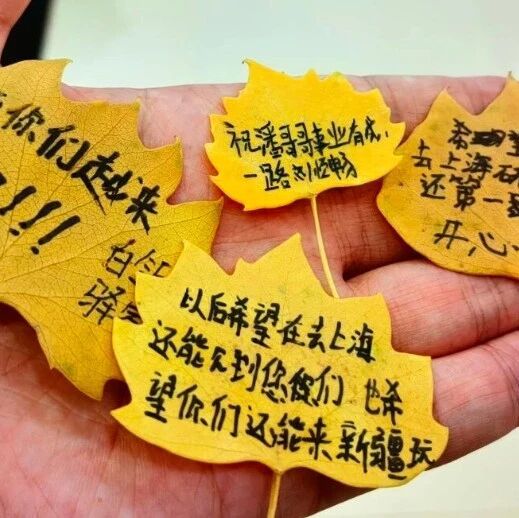 你们走出来
!!!
白
驿
祝潘哥哥事业有成,
一路顺畅
希望
去上海
还第一
开心
以后希望在去上海
还能见到您们 也希
望你们还能来新疆玩